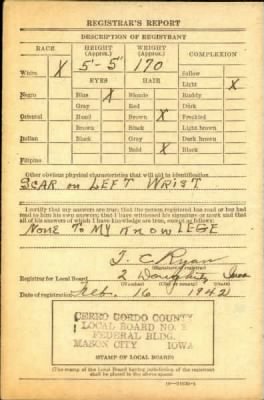 REGISTRAR'S REPORT
DESCRIPTION OF REGISTRANT
RACE HEIGHT (Approx.) WEIGHT (Approx.) COMPLEXION
White X 5'-5" 170 Sallow
EYES HAIR Light X
Negro Blue X Blonde Ruddy
Gray Red Dark
Oriental Hazel Brown X Freckled
Brown Black Light brown
Indian Black Gray Dark brown
Bald X Black
Filipino
Other obvious physical characteristics that will aid in identification
SCAR ON LEFT WRIST
I certify that my answers are true; that the person registered has read or has had
read to him his own answers; that I have witnessed his signature or mark and that
all of his answers of which I have knowledge are true, except as follows:
NONE TO MY KNOWLEGE
T. C. Ryan
(Signature of registrar)
Registrar for Local Board 2 Iowa
Date of registration Feb. 16 1942
CERRO GORDO COUNTY
LOCAL BOARD NO. 2
FEDERAL BLDG.
MASON CITY IOWA
(STAMP OF LOCAL BOARD)
(The stamp of the Local Board having jurisdiction of the registrant
shall be placed in the above space)